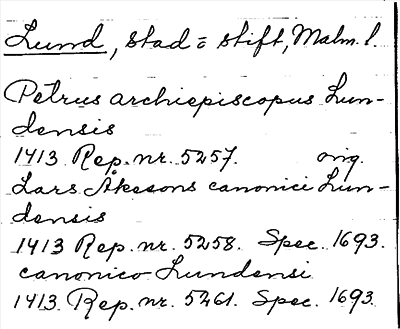 Lund, stad o stift, Malm. l.
Petrus archiepiscopus Lun-
densis
1413 Rep. nr. 5257. orig.
Lars Åkesons canonici Lun-
densis
1413 Rep. nr. 5258. Spec. 1693.
canonico Lundensi
1413. Rep. nr. 5261. Spec. 1693